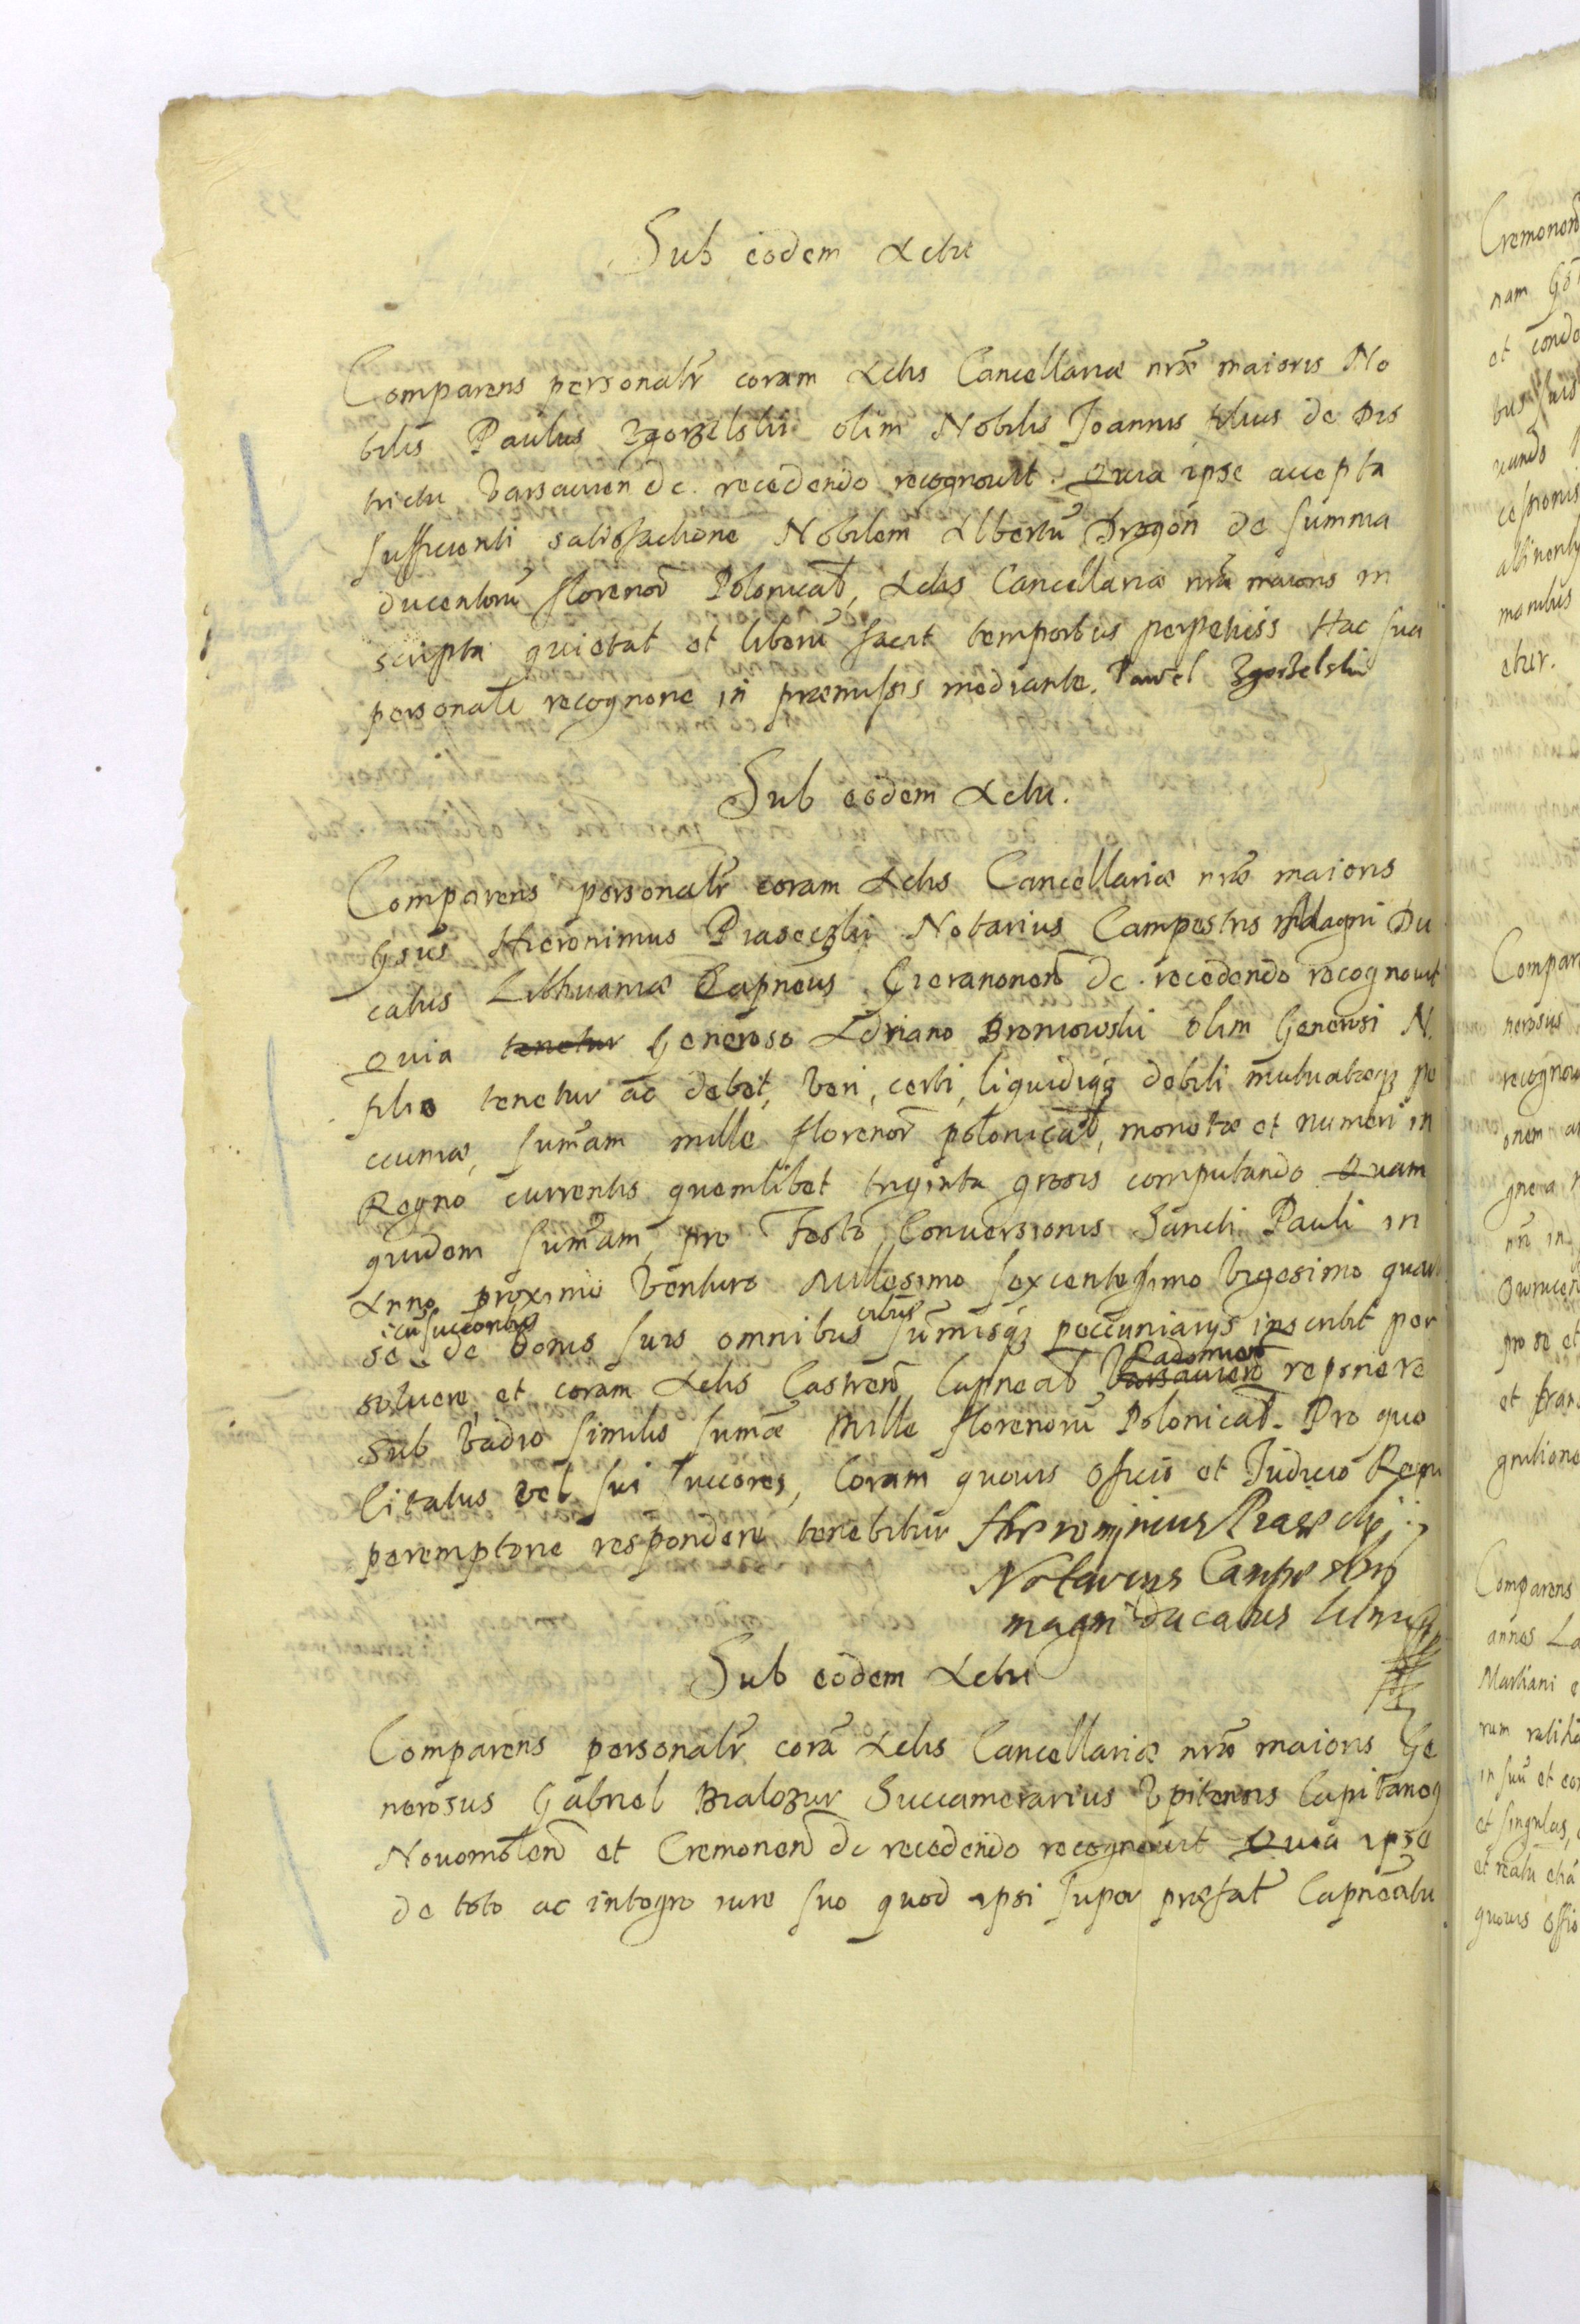 Sub eodem Actu
Comparens personalr coram Actis Cancellariæ nræ maioris No
bilis Paulus Zgorzelski olim Nobilis Joannis filius de Dis
trictu Varsavien dc. recedendo recognovit. Quia ipse accepta
sufficienti satisfactione Nobilem Albertũ Dragon de summa
ducentorũ florenor Polonicał, Actis Cancellariæ nræ maioris in
scripta quietat et liberũ facit temporibus perpetuis Hac sua
personali recognone in præmissis mediante. Pawel Zgorzelski
Sub eodem Actu.
Comparens personalr coram Actis Cancellariæ nræ maioris
Gsus Hieronimus Piaseczki Notarius Campestris Magni Du
catus Lithuaniæ Capneus Gieranonen dc. recedendo recognovit
Quia tenetur Generoso Adriano Broniowski olim Generosi N.
filio tenetur ac debet, veri, certi, liquidiq debiti mutuatæq pe
cuniæ, sumam mille florenor polonicał, monetæ et numeri in
Regno currentis quemlibet triginta grosis computando Quam
quidem sumam, pro Festo Conversionis Sancti Pauli in
Anno proximè venturo Millesimo sexcentesimo vigesimo quar
cũ succoribus
se de bonis suis omnibus sumisq pecuniarys inscribit per
Radomien
solvere, et coram Actis Castren Capneał Varsavien reponere
sub vadio similis sumæ Mille florenorũ Polonicał. Pro quo
Citatus vel sui succores, Coram quovis officio et Judicio Regni
peremptorie respondere tenebitur Hieronimus Piasecki
Notarius Campestris
magni ducatus
Sub eodem Actu
Comparens personalr corã Actis Cancellariæ nræ maioris Ge
nerosus Gabriel Bialozur Succamerarius Vpitensis Capitaneq
Novomłen et Cremonen dc recedendo recognovit Quia ipse
de toto ac integro iure suo quod ipsi super præfał Capneatu